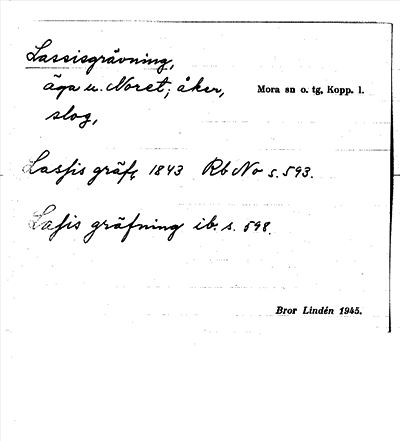 Lassisgrävning,
äga u. Noret; åker, Mora sn o. tg, Kopp. l.
slog,
Lassis gräfg 1843 Rb No s. 593.
Lassis gräfning ib. s. 598.
Bror Lindén 1945.